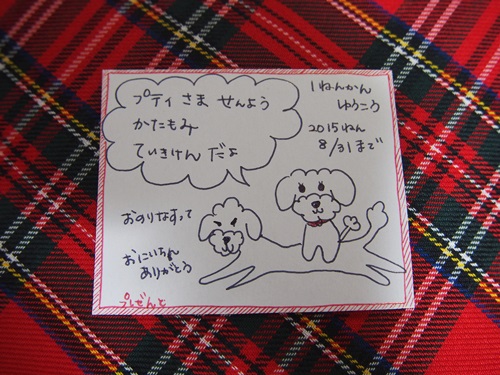 プティ さま せんよう
かたもみ
ていきけん だよ
1ねんかん
ゆうこう
2015ねん
8/31まで
おのりなすって
おにいちゃん
ありがとう
ぷれぜんと